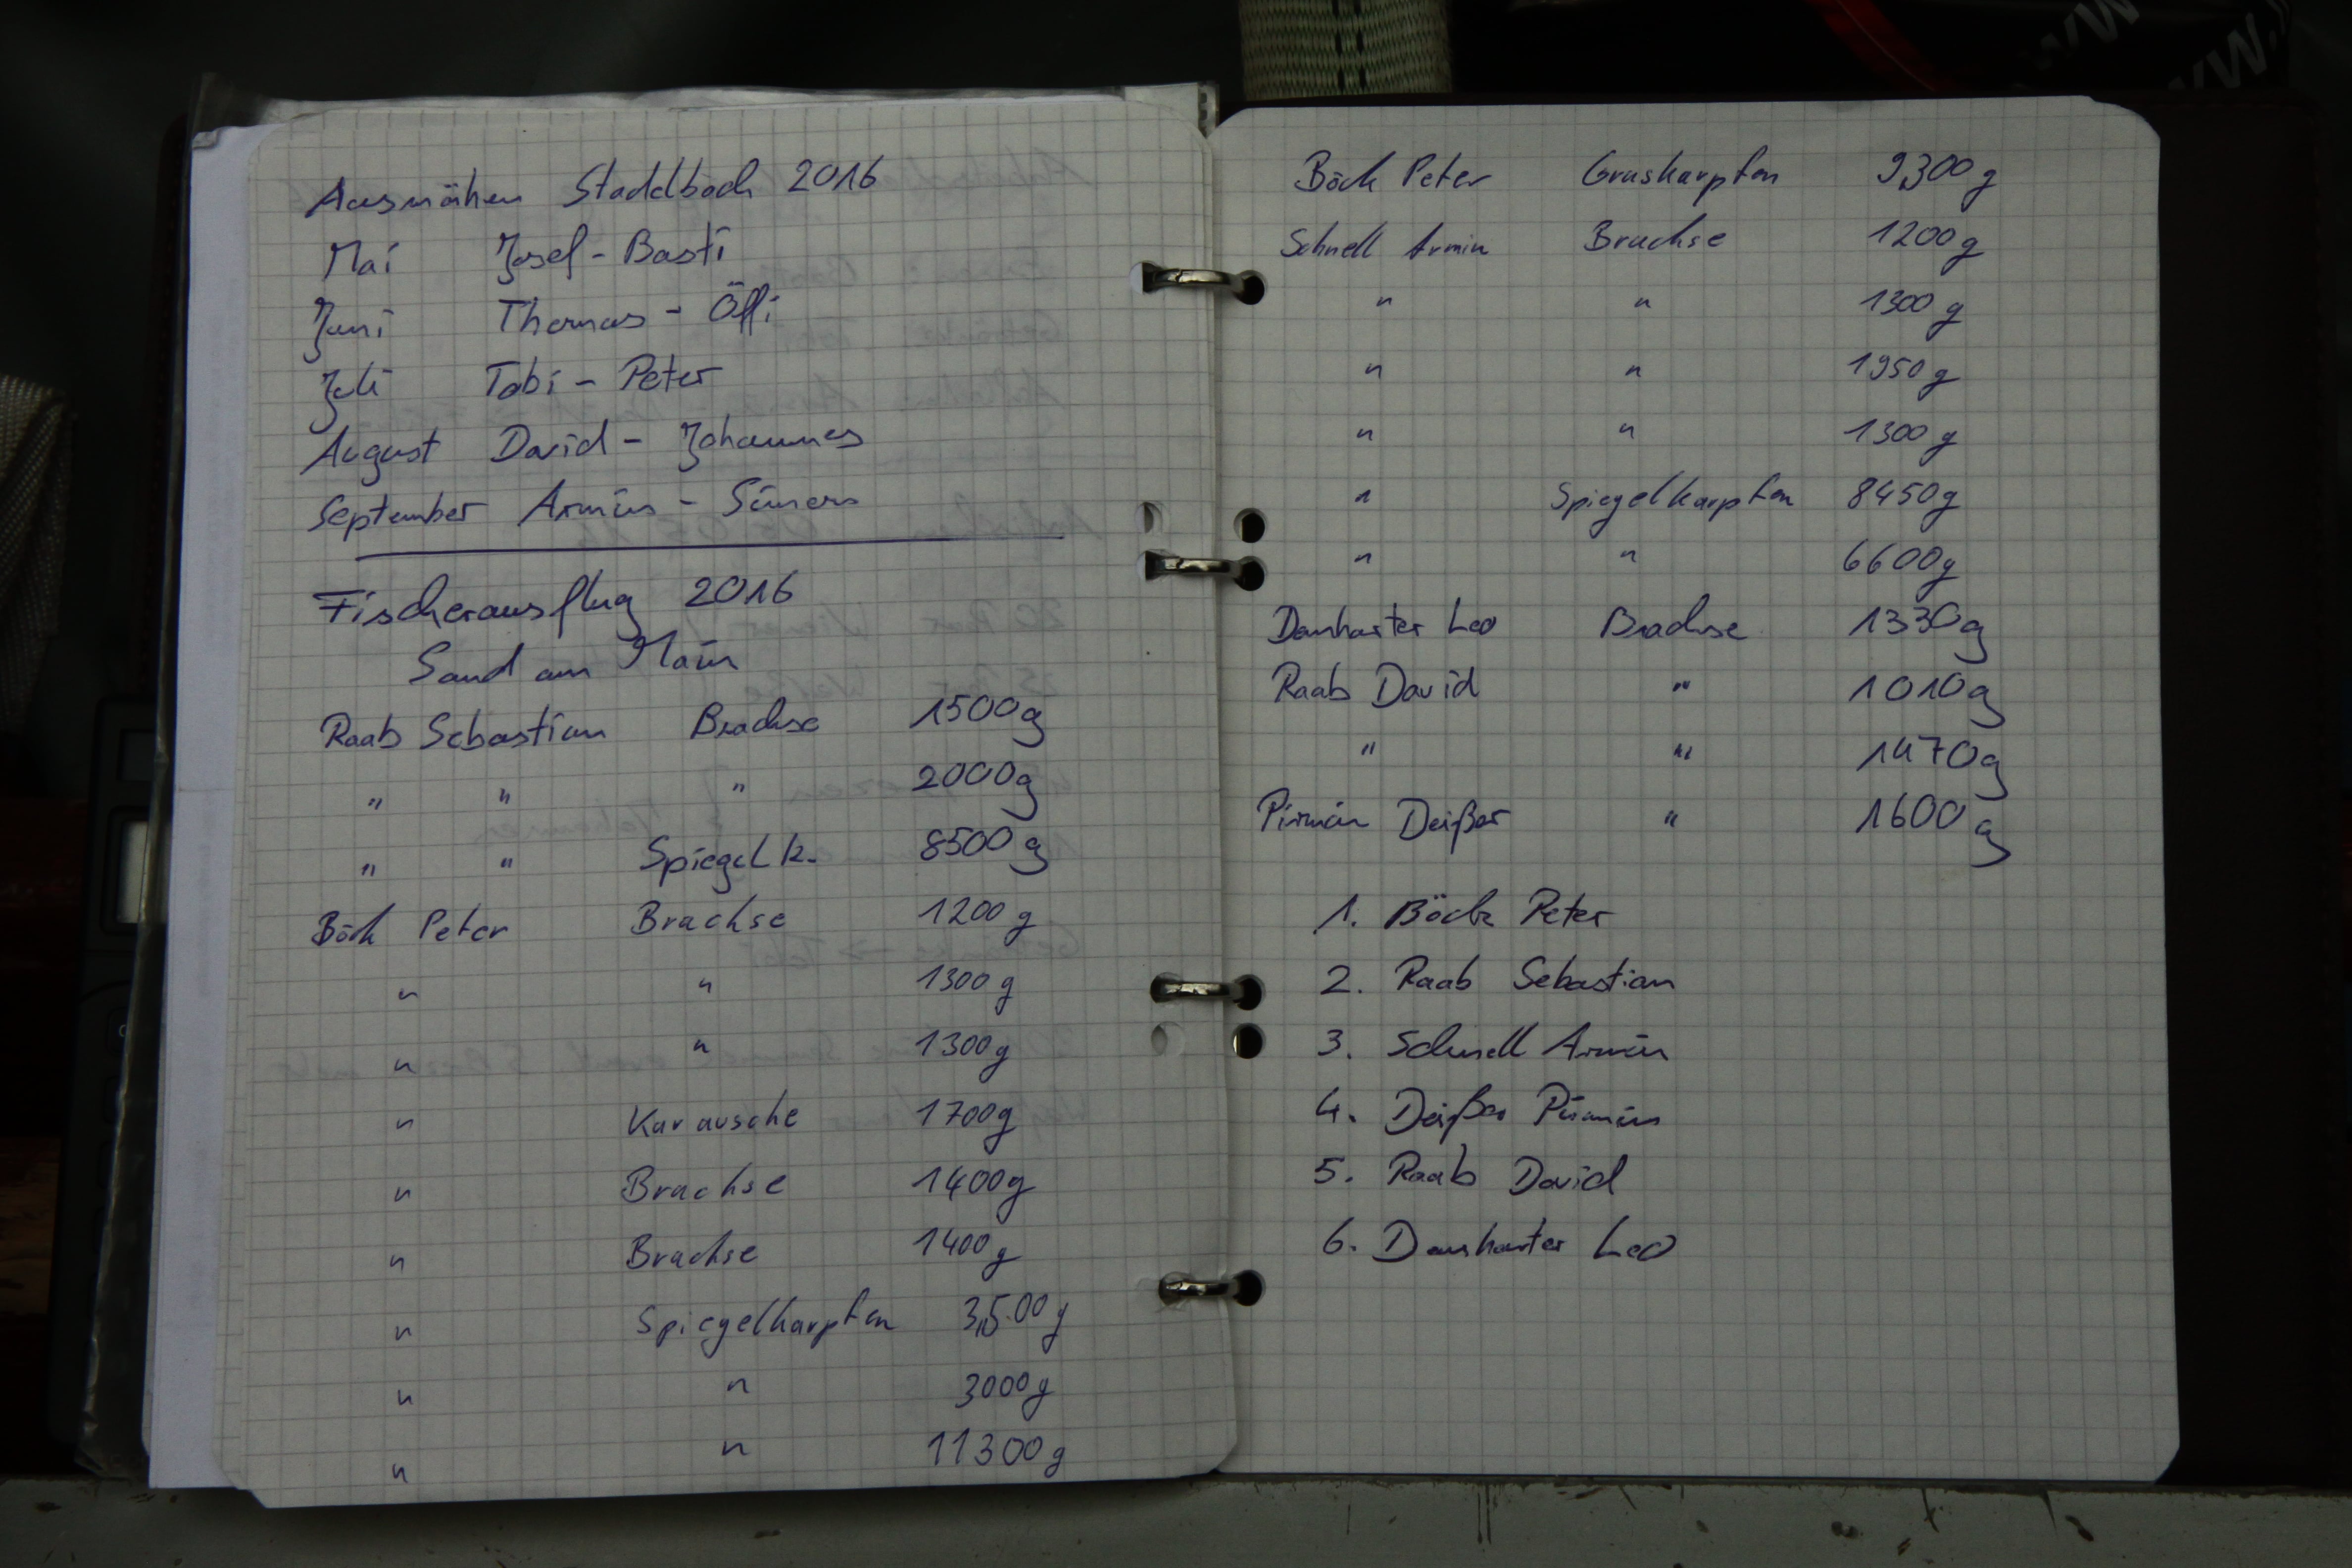 Ausmähen Stadelbach 2016
Mai Josef - Basti
Juni Thomas - Öffi
Juli Tobi - Peter
August David - Johannes
September Armin - Simon
Fischerausflug 2016
Sand am Main
Raab Sebastian Brachse 1500g
" " " 2000g
" " Spiegelk. 8500g
Böck Peter Brachse 1200g
" " 1300g
" " 1300g
" Karausche 1700g
" Brachse 1400g
" Brachse 1400g
" Spiegelkarpfen 3,500g
" " 3000g
" " 11300g
Böck Peter Graskarpfen 9300g
Schnell Armin Brachse 1200g
" " 1300g
" " 1950g
" " 1300g
" Spiegelkarpfen 8450g
" " 6600g
Danharter Leo Brachse 1330g
Raab David " 1010g
" " 1470g
Pirmin Deißer " 1600g
1. Böck Peter
2. Raab Sebastian
3. Schnell Armin
4. Deißer Pirmin
5. Raab David
6. Danharter Leo